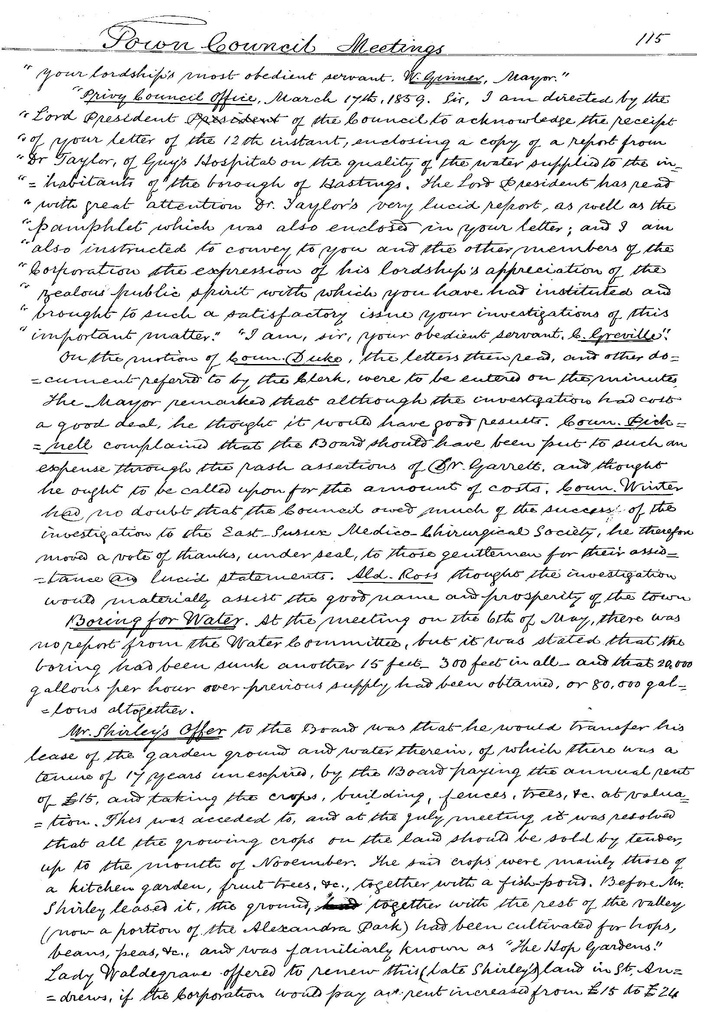 Town Council Meetings 115
"your lordship's most obedient servant. W. Ginner, Mayor."
"Privy Council Office, March 17th, 1859. Sir, I am directed by the
"Lord President President of the Council to acknowledge the receipt
"of your letter of the 12th instant, enclosing a copy of a report from
"Dr Taylor, of Guy's Hospital on the quality of the water supplied to the in-
"=habitants of the borough of Hastings. The Lord President has read
"with great attention Dr. Taylor's very lucid report, as well as the
"Pamphlet which was also enclosed in your letter; and I am
"also instructed to convey to you and the other members of the
"Corporation the expression of his lordship's appreciation of the
"zealous public spirit with which you have had instituted and
"brought to such a satisfactory issue your investigations of this
"important matter." "I am, sir, your obedient servant, C. Greville".
On the motion of Coun. Duke, the letters then read, and other do=
=cument referred to by the Clerk, were to be entered on the minutes
The Mayor remarked that although the investigation had cost
a good deal, he thought it would have good results. Coun. Pick=
=nell complained that the Board should have been put to such an
expense through the rash assertions of Dr. Garrett, and thought
he ought to be called upon for the amount of costs. Coun. Winter
had no doubt that the Council owed much of the success of the
investigation to the East-Sussex Medico-Chirurgical Society, he therefore
moved a vote of thanks, under seal, to those gentlemen for their assis=
=tance an lucid statements. Ald. Ross thought the investigation
would materially assist the good name and prosperity of the town
Boring for Water. At the meeting on the 6th of May, there was
no report from the Water Committee, but it was stated that the
boring had been sunk another 15 feet - 300 feet in all - and that 20,000
gallons per hour over previous supply had been obtained, or 80,000 gal=
=lons altogether.
Mr. Shirley's Offer to the Board was that he would transfer his
lease of the garden ground and water therein, of which there was a
tenure of 17 years unexpired, by the Board paying the annual rent
of £15, and taking the crops, building, fences, trees, &c. at valua=
=tion. This was acceded to, and at the July meeting, it was resolved
that all the growing crops on the land should be sold by tender,
up to the month of November. The said crops were mainly those of
a kitchen garden, fruit trees, &c., together with a fish-pond. Before Mr.
Shirley leased it, the ground, together with the rest of the valley
(now a portion of the Alexandra Park) had been cultivated for hops,
beans, peas, &c., and was familiarly known as "The Hop Gardens."
Lady Waldegrave offered to renew this (late Shirley's) land in St. An=
=drews, if the Corporation would pay a rent increased from £15 to £24